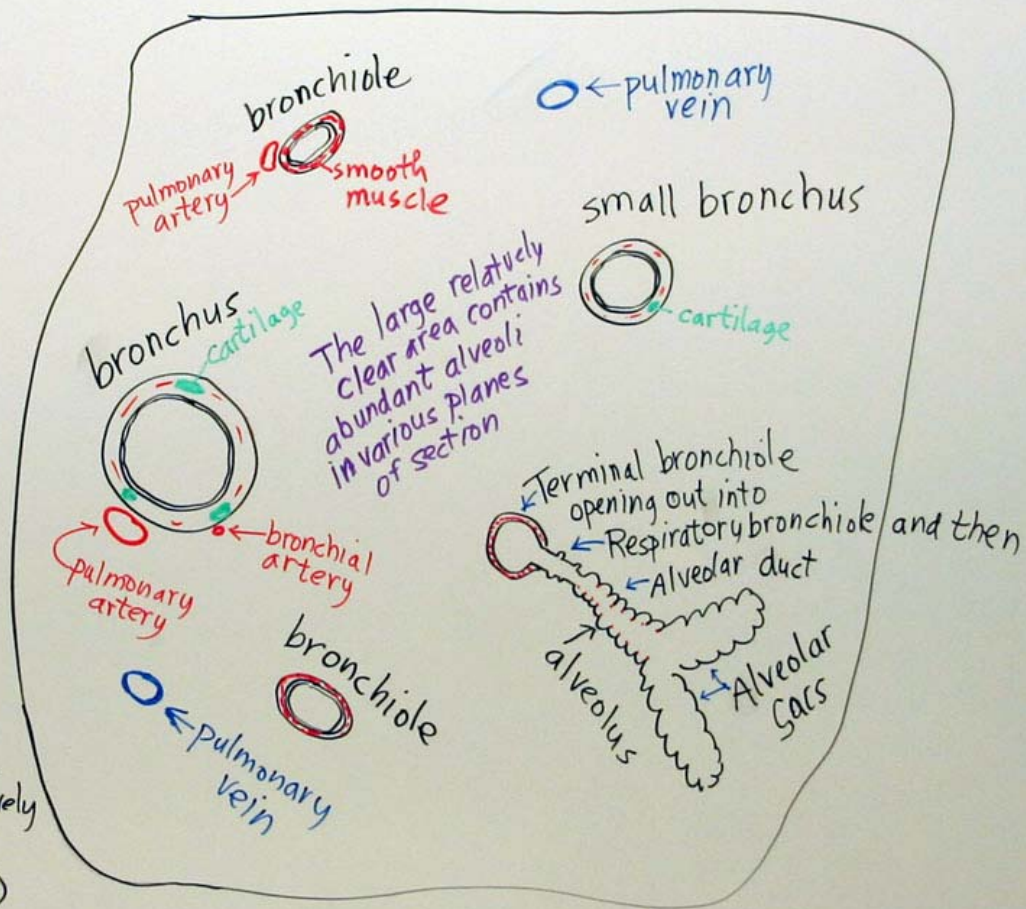 bronchiole
pulmonary
artery
smooth
muscle
pulmonary
vein
small bronchus
cartilage
bronchus
cartilage
The large relatively
clear area contains
abundant alveoli
in various planes
of section
bronchial
artery
pulmonary
artery
Terminal bronchiole
opening out into
Respiratory bronchiole and then
Alveolar duct
alveolus
Alveolar
Sacs
bronchiole
pulmonary
vein